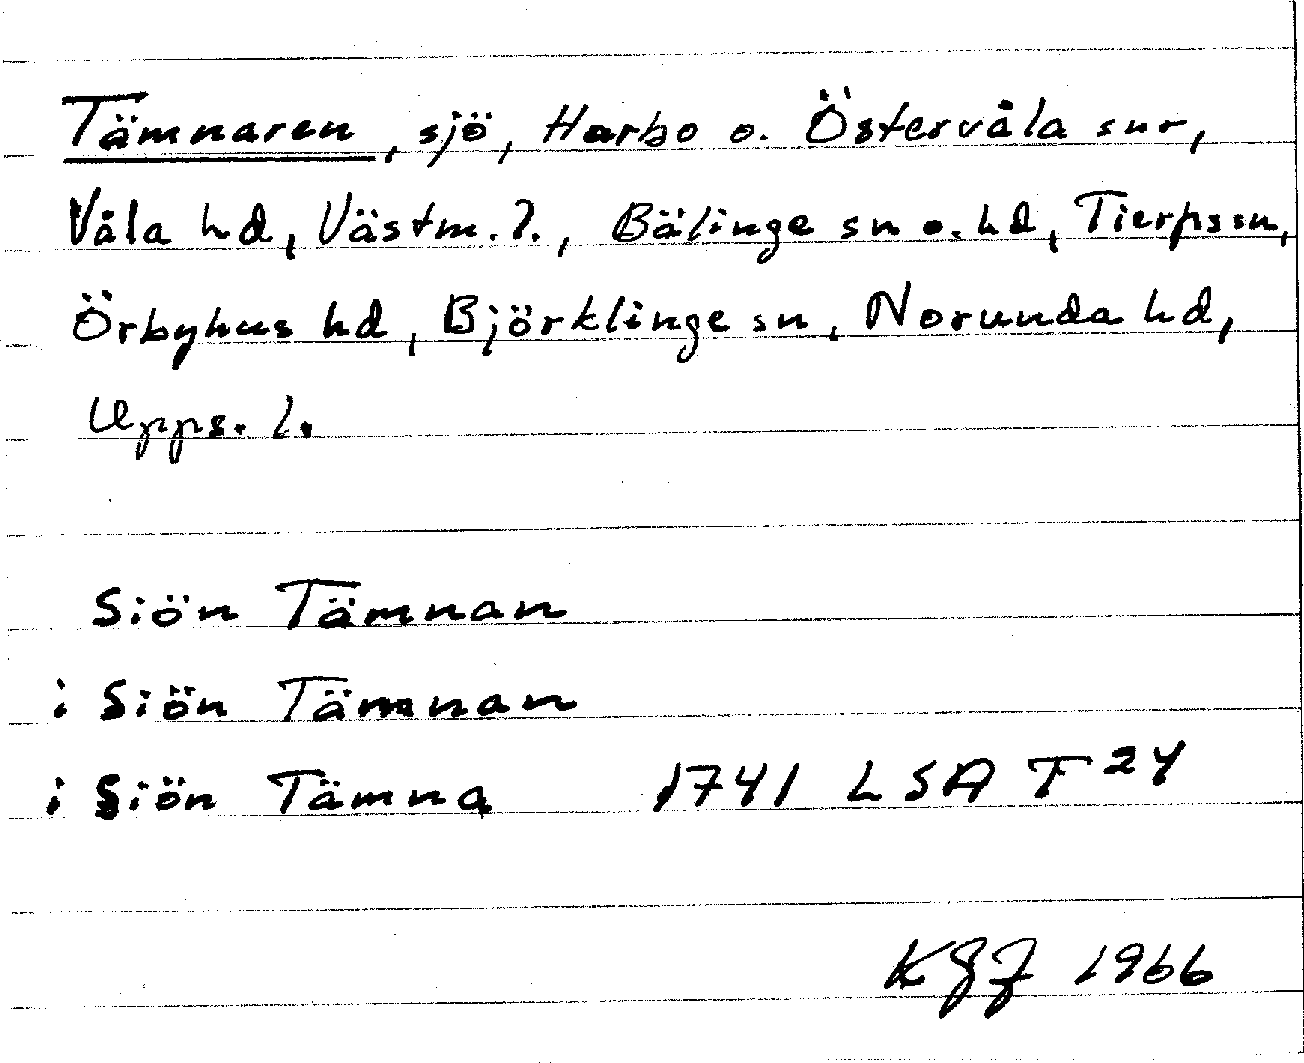 Tämnaren, sjö, Harbo o. Östervåla snr,
Våla hd, Västm. l., Bälinge sn o. hd, Tierps sn,
Örbyhus hd, Björklinge sn, Norunda hd,
Upps. l.
Siön Tämnan
i Siön Tämnan
i Siön Tämna 1741 LSA T 24
1966